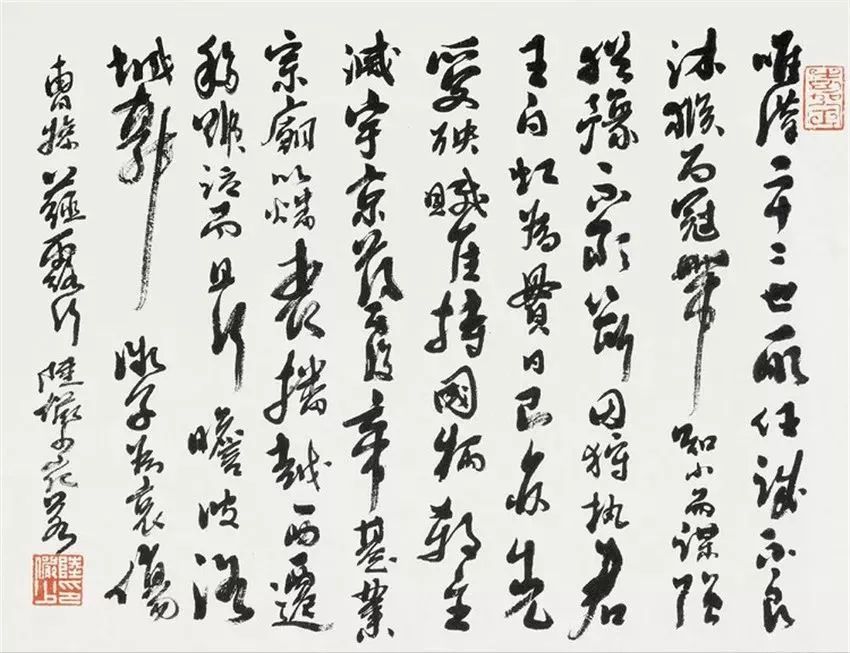 唯漢二十二世所任誠不良
沐猴而冠帶知小而謀強
猶豫不敢斷因狩執君
王白虹為貫日己亦先
受殃賊臣持國柄殺主
滅宇京蕩覆帝基業
宗廟以燔喪播越西遷
移號泣而且行瞻彼洛
城郭微子為哀傷
曹操薤露行陸儼少宛若
陸儼少印